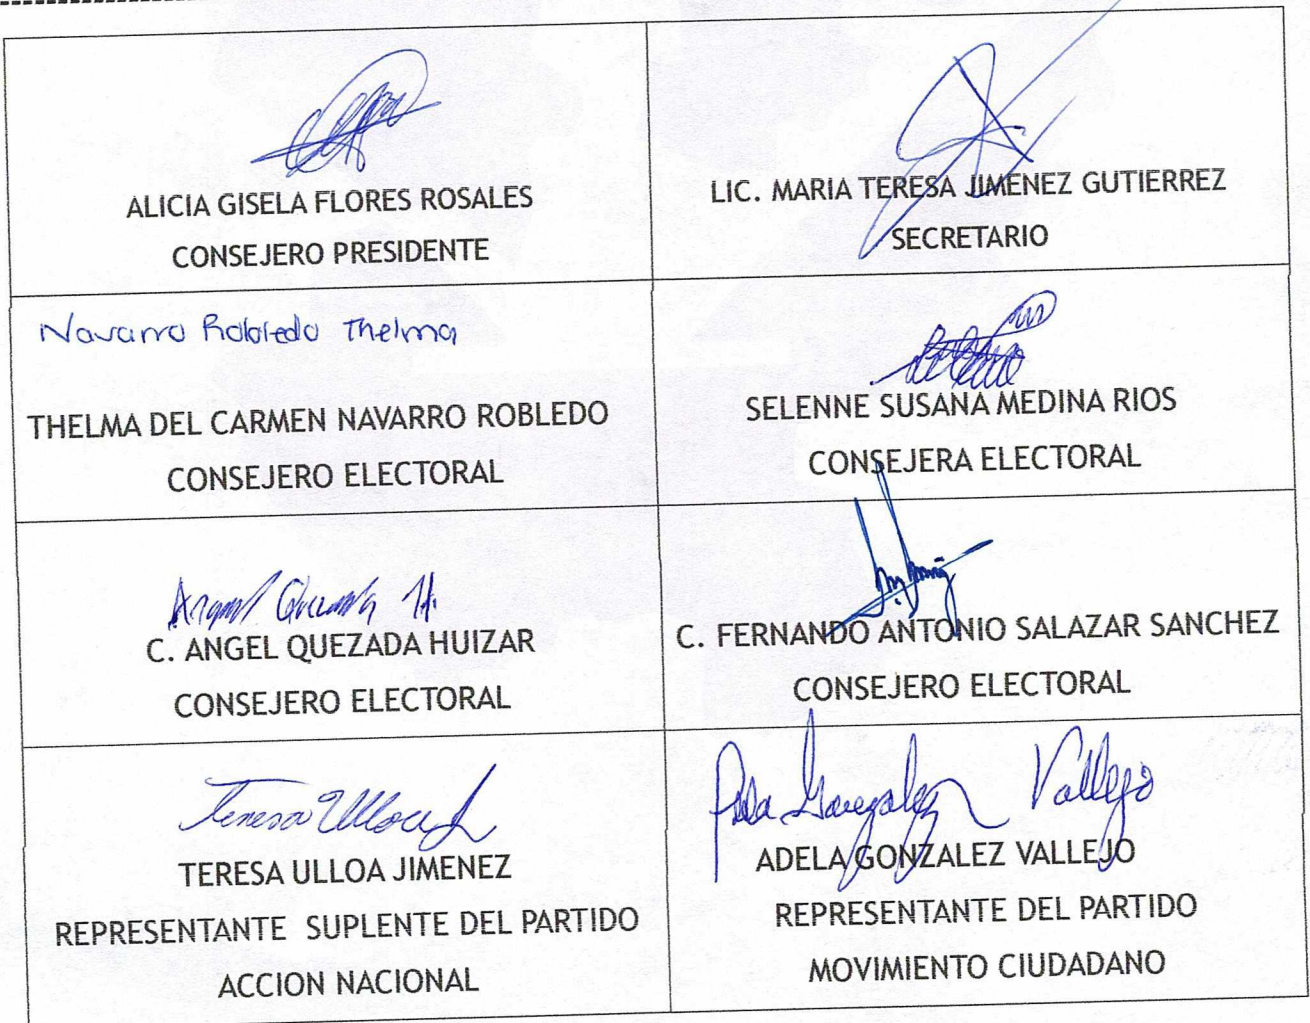 ALICIA GISELA FLORES ROSALES
CONSEJERO PRESIDENTE
LIC. MARIA TERESA JIMENEZ GUTIERREZ
SECRETARIO
Navarro Robledo Thelma
THELMA DEL CARMEN NAVARRO ROBLEDO
CONSEJERO ELECTORAL
SELENNE SUSANA MEDINA RIOS
CONSEJERA ELECTORAL
Angel Quezada H.
C. ANGEL QUEZADA HUIZAR
CONSEJERO ELECTORAL
C. FERNANDO ANTONIO SALAZAR SANCHEZ
CONSEJERO ELECTORAL
Teresa Ulloa J
TERESA ULLOA JIMENEZ
REPRESENTANTE SUPLENTE DEL PARTIDO
ACCION NACIONAL
Adela Gonzalez Vallejo
ADELA GONZALEZ VALLEJO
REPRESENTANTE DEL PARTIDO
MOVIMIENTO CIUDADANO